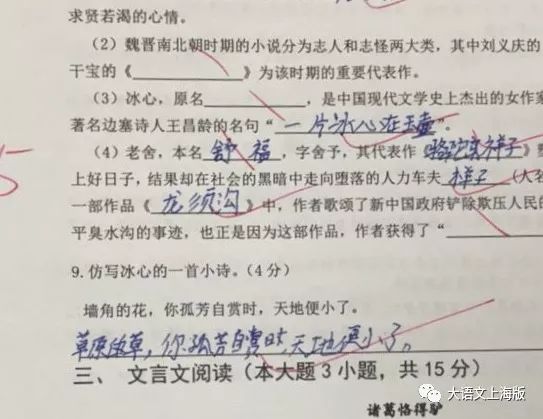 求贤若渴的心情。
（2）魏晋南北朝时期的小说分为志人和志怪两大类，其中刘义庆的
干宝的《                》为该时期的重要代表作。
（3）冰心，原名               ，是中国现代文学史上杰出的女作家
著名边塞诗人王昌龄的名句“一片冰心在玉壶”。
（4）老舍，本名舒福，字舍予，其代表作《骆驼祥子》
上好日子，结果却在社会的黑暗中走向堕落的人力车夫祥子（大名
一部作品《龙须沟》中，作者歌颂了新中国政府铲除欺压人民的
平臭水沟的事迹，也正是因为这部作品，作者获得了“
9.仿写冰心的一首小诗。（4分）
墙角的花，你孤芳自赏时，天地便小了。
草原的草，你孤芳自赏时，天地便小了。
三、 文言文阅读（本大题 3 小题，共 15 分）
大语文上海版
诸葛恪得驴